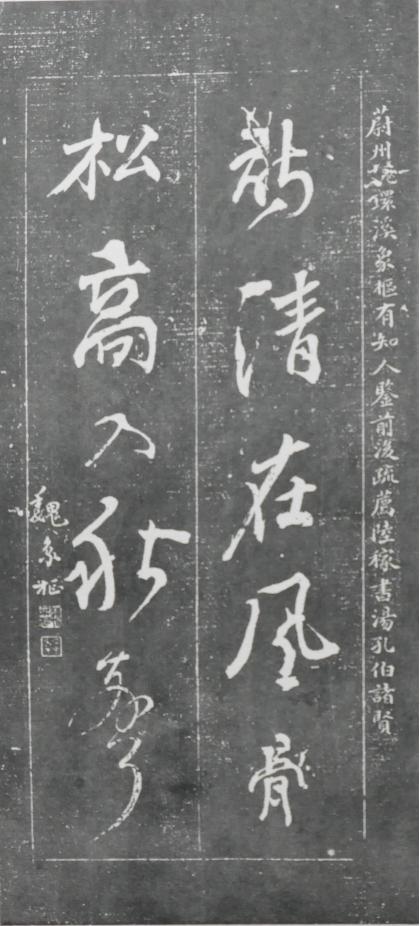 蔚州魏環溪象樞有知人鑒前後疏薦陸稼書湯孔伯諸賢
清在風骨
松高入秋
魏象樞